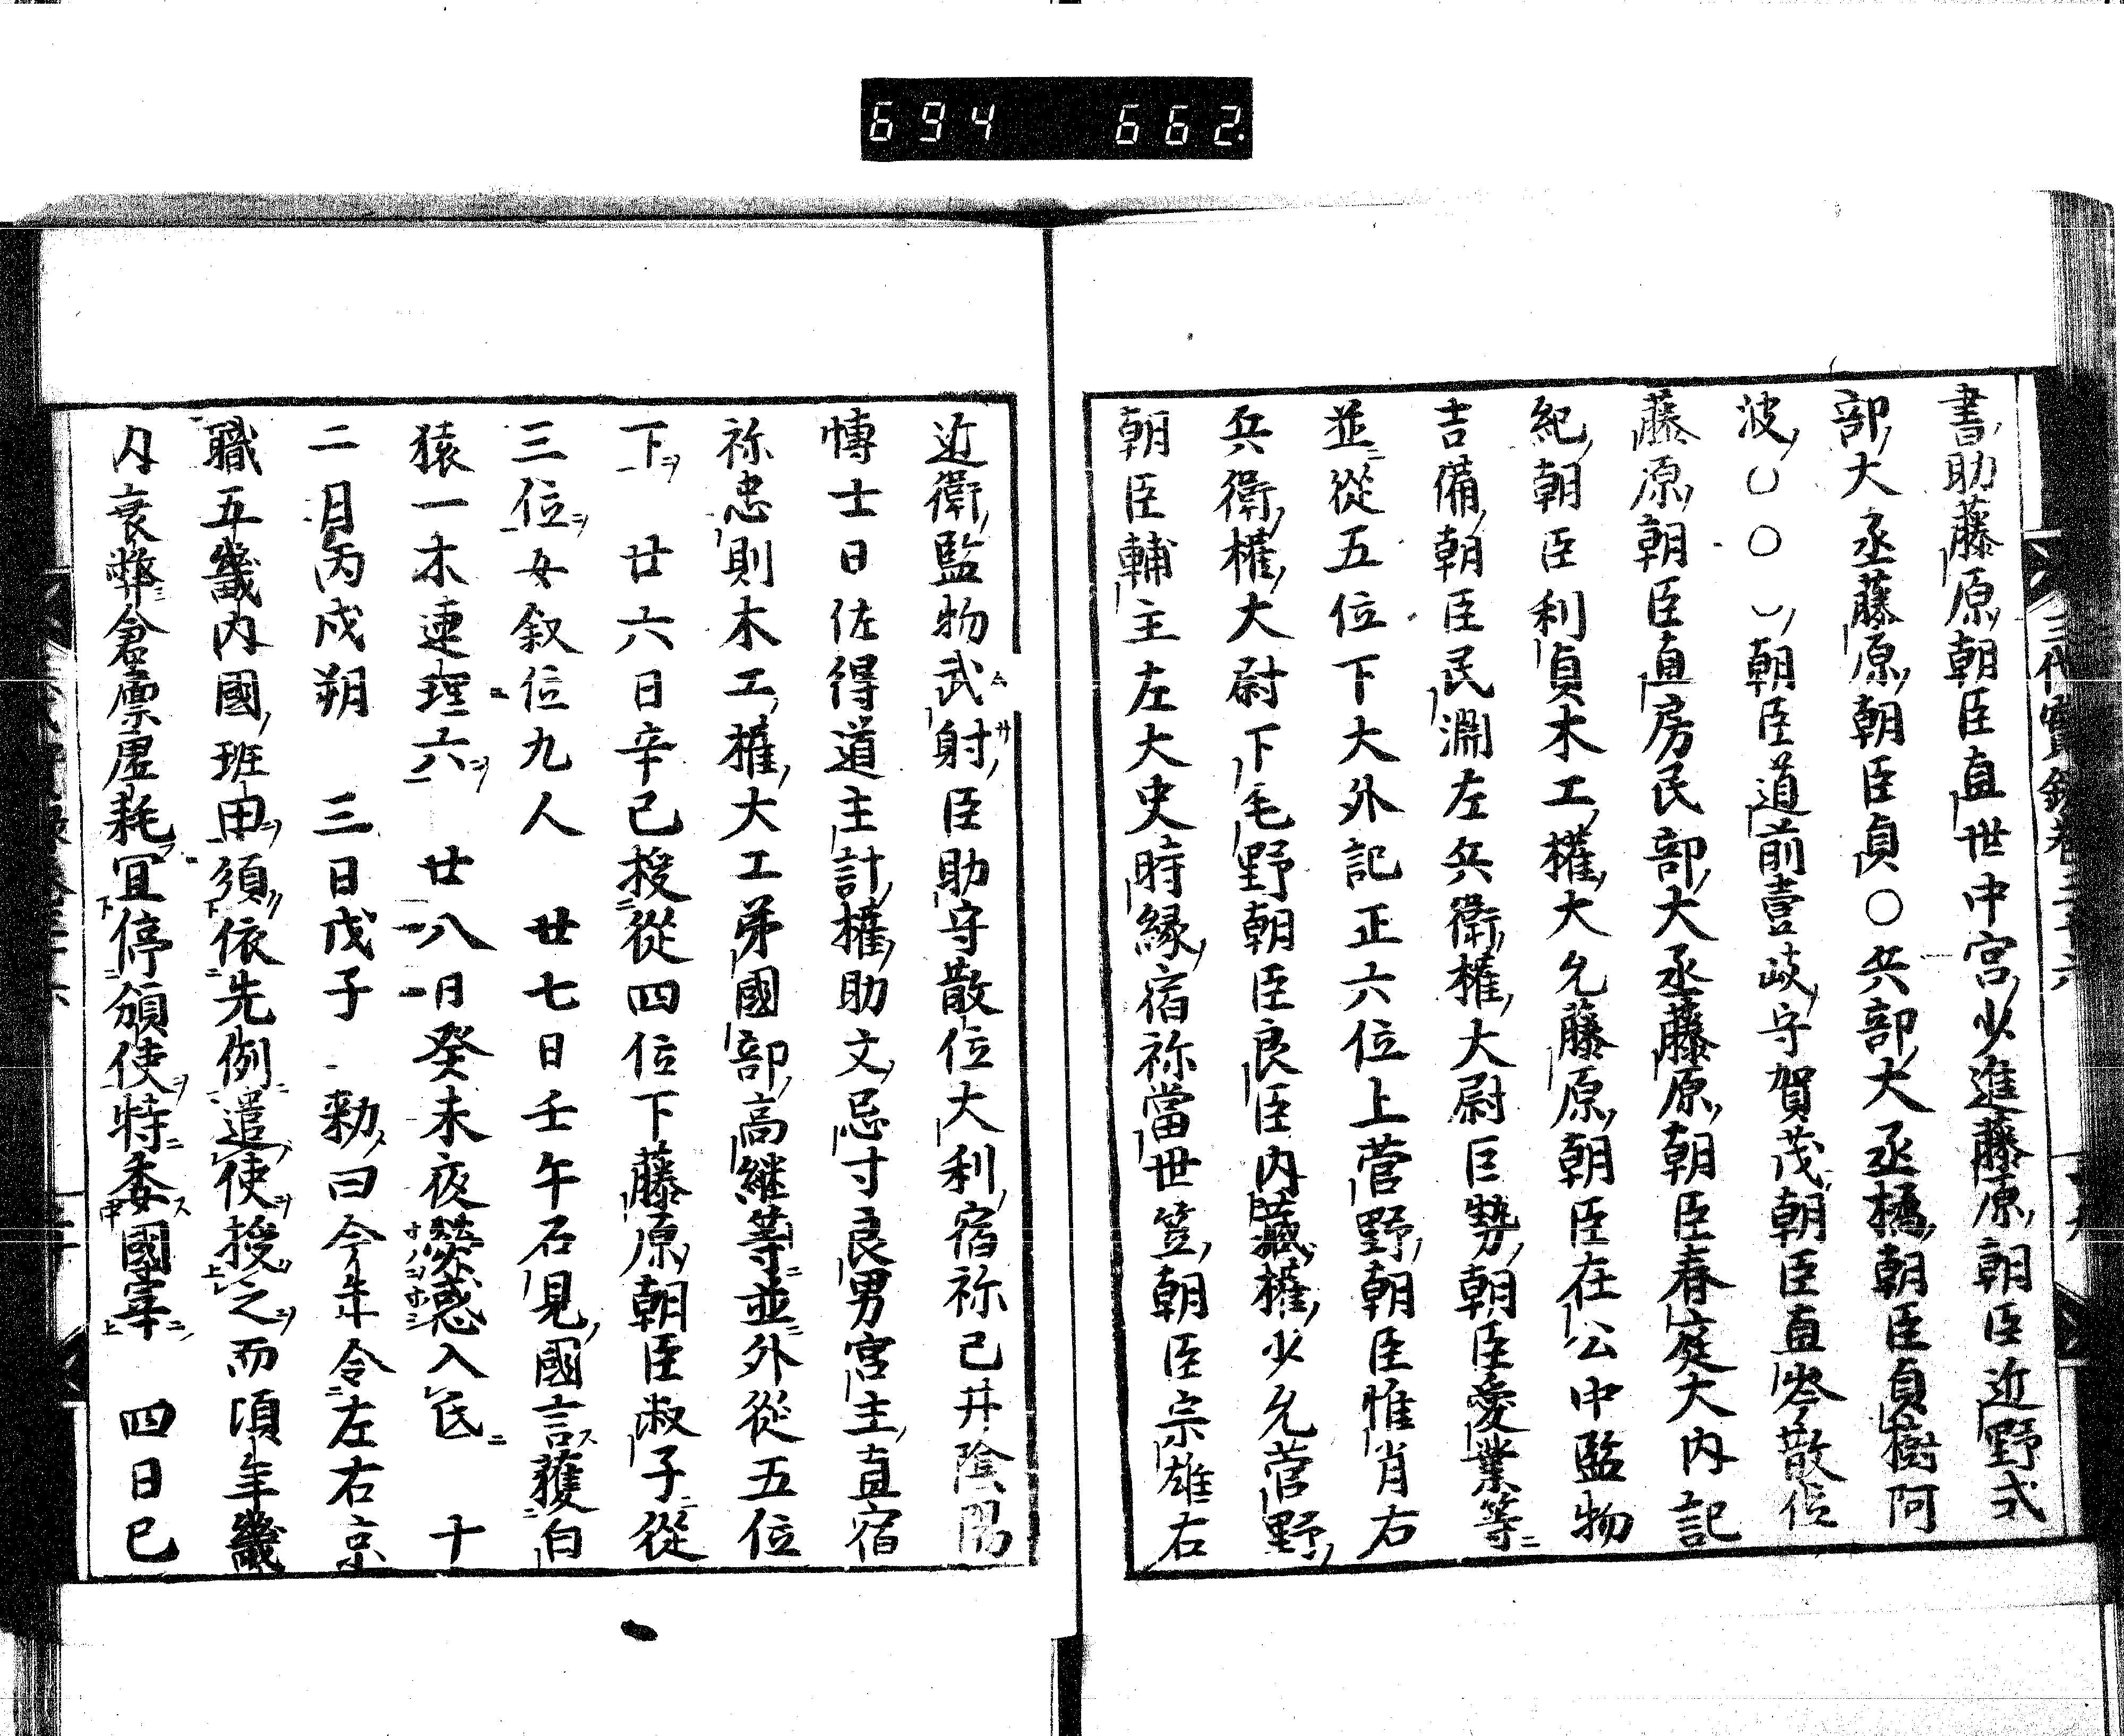 694 662.
書助藤原朝臣直世中宮少進藤原朝臣近野式
部大丞藤原朝臣貞〇兵部大丞橘朝臣貞樹阿
波〇〇〇朝臣道前壹岐守賀茂朝臣直岑散位
藤原朝臣直房民部大丞藤原朝臣春庭大内記
紀朝臣利貞木工權大允藤原朝臣在公中監物
吉備朝臣民淵左兵衛權大尉巨勢朝臣愛業等
並從五位下大外記正六位上菅野朝臣惟肖右
兵衛權大尉下毛野朝臣良臣内藏權少允菅野
朝臣輔主左大史時縁宿祢當世笠朝臣宗雄右
近衛監物武射臣助守散位大利宿祢己井陰陽
博士日佐得道主計權助文忌寸良男宮主直宿
祢忠則木工權大工弟國部高継等並外從五位
下 廿六日辛巳授從四位下藤原朝臣淑子從
三位女叙位九人 廿七日壬午石見國言獲白
猿一木連理六 廿八日癸未夜熒惑入氐 十
二月丙戌朔 三日戊子 勅曰今年令左右京
職五畿内國班田須依先例遣使授之而頃年畿
内衰弊倉廩虚耗宜停頒使特委國宰 四日己